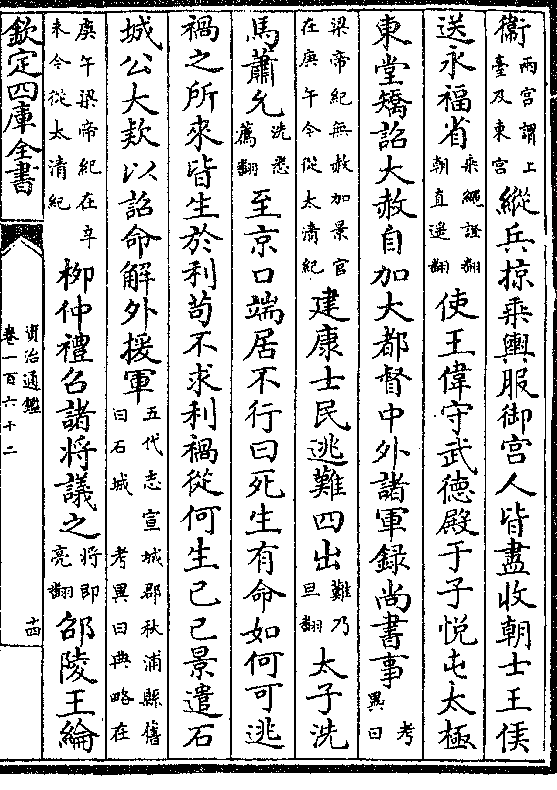 衞兩宫謂上臺及東宫縱兵掠乘輿服御宫人皆盡收朝士王侯
送永福省乘繩證翻朝直遥翻使王偉守武德殿于子悦屯太極
東堂矯詔大赦自加大都督中外諸軍録尚書事考異曰
梁帝紀無赦加景官在庚午今從太清紀建康士民逃難四出難乃旦翻太子洗
馬蕭允洗悉薦翻至京口端居不行曰死生有命如何可逃
禍之所來皆生於利苟不求利禍從何生己巳景遣石
城公大欵以詔命解外援軍五代志宣城郡秋浦縣舊曰石城考異曰典略在
庚午梁帝紀在辛未今從太清紀柳仲禮召諸將議之將即亮翻邵陵王綸
欽定四庫全書
資治通鑑
卷一百六十二
十四